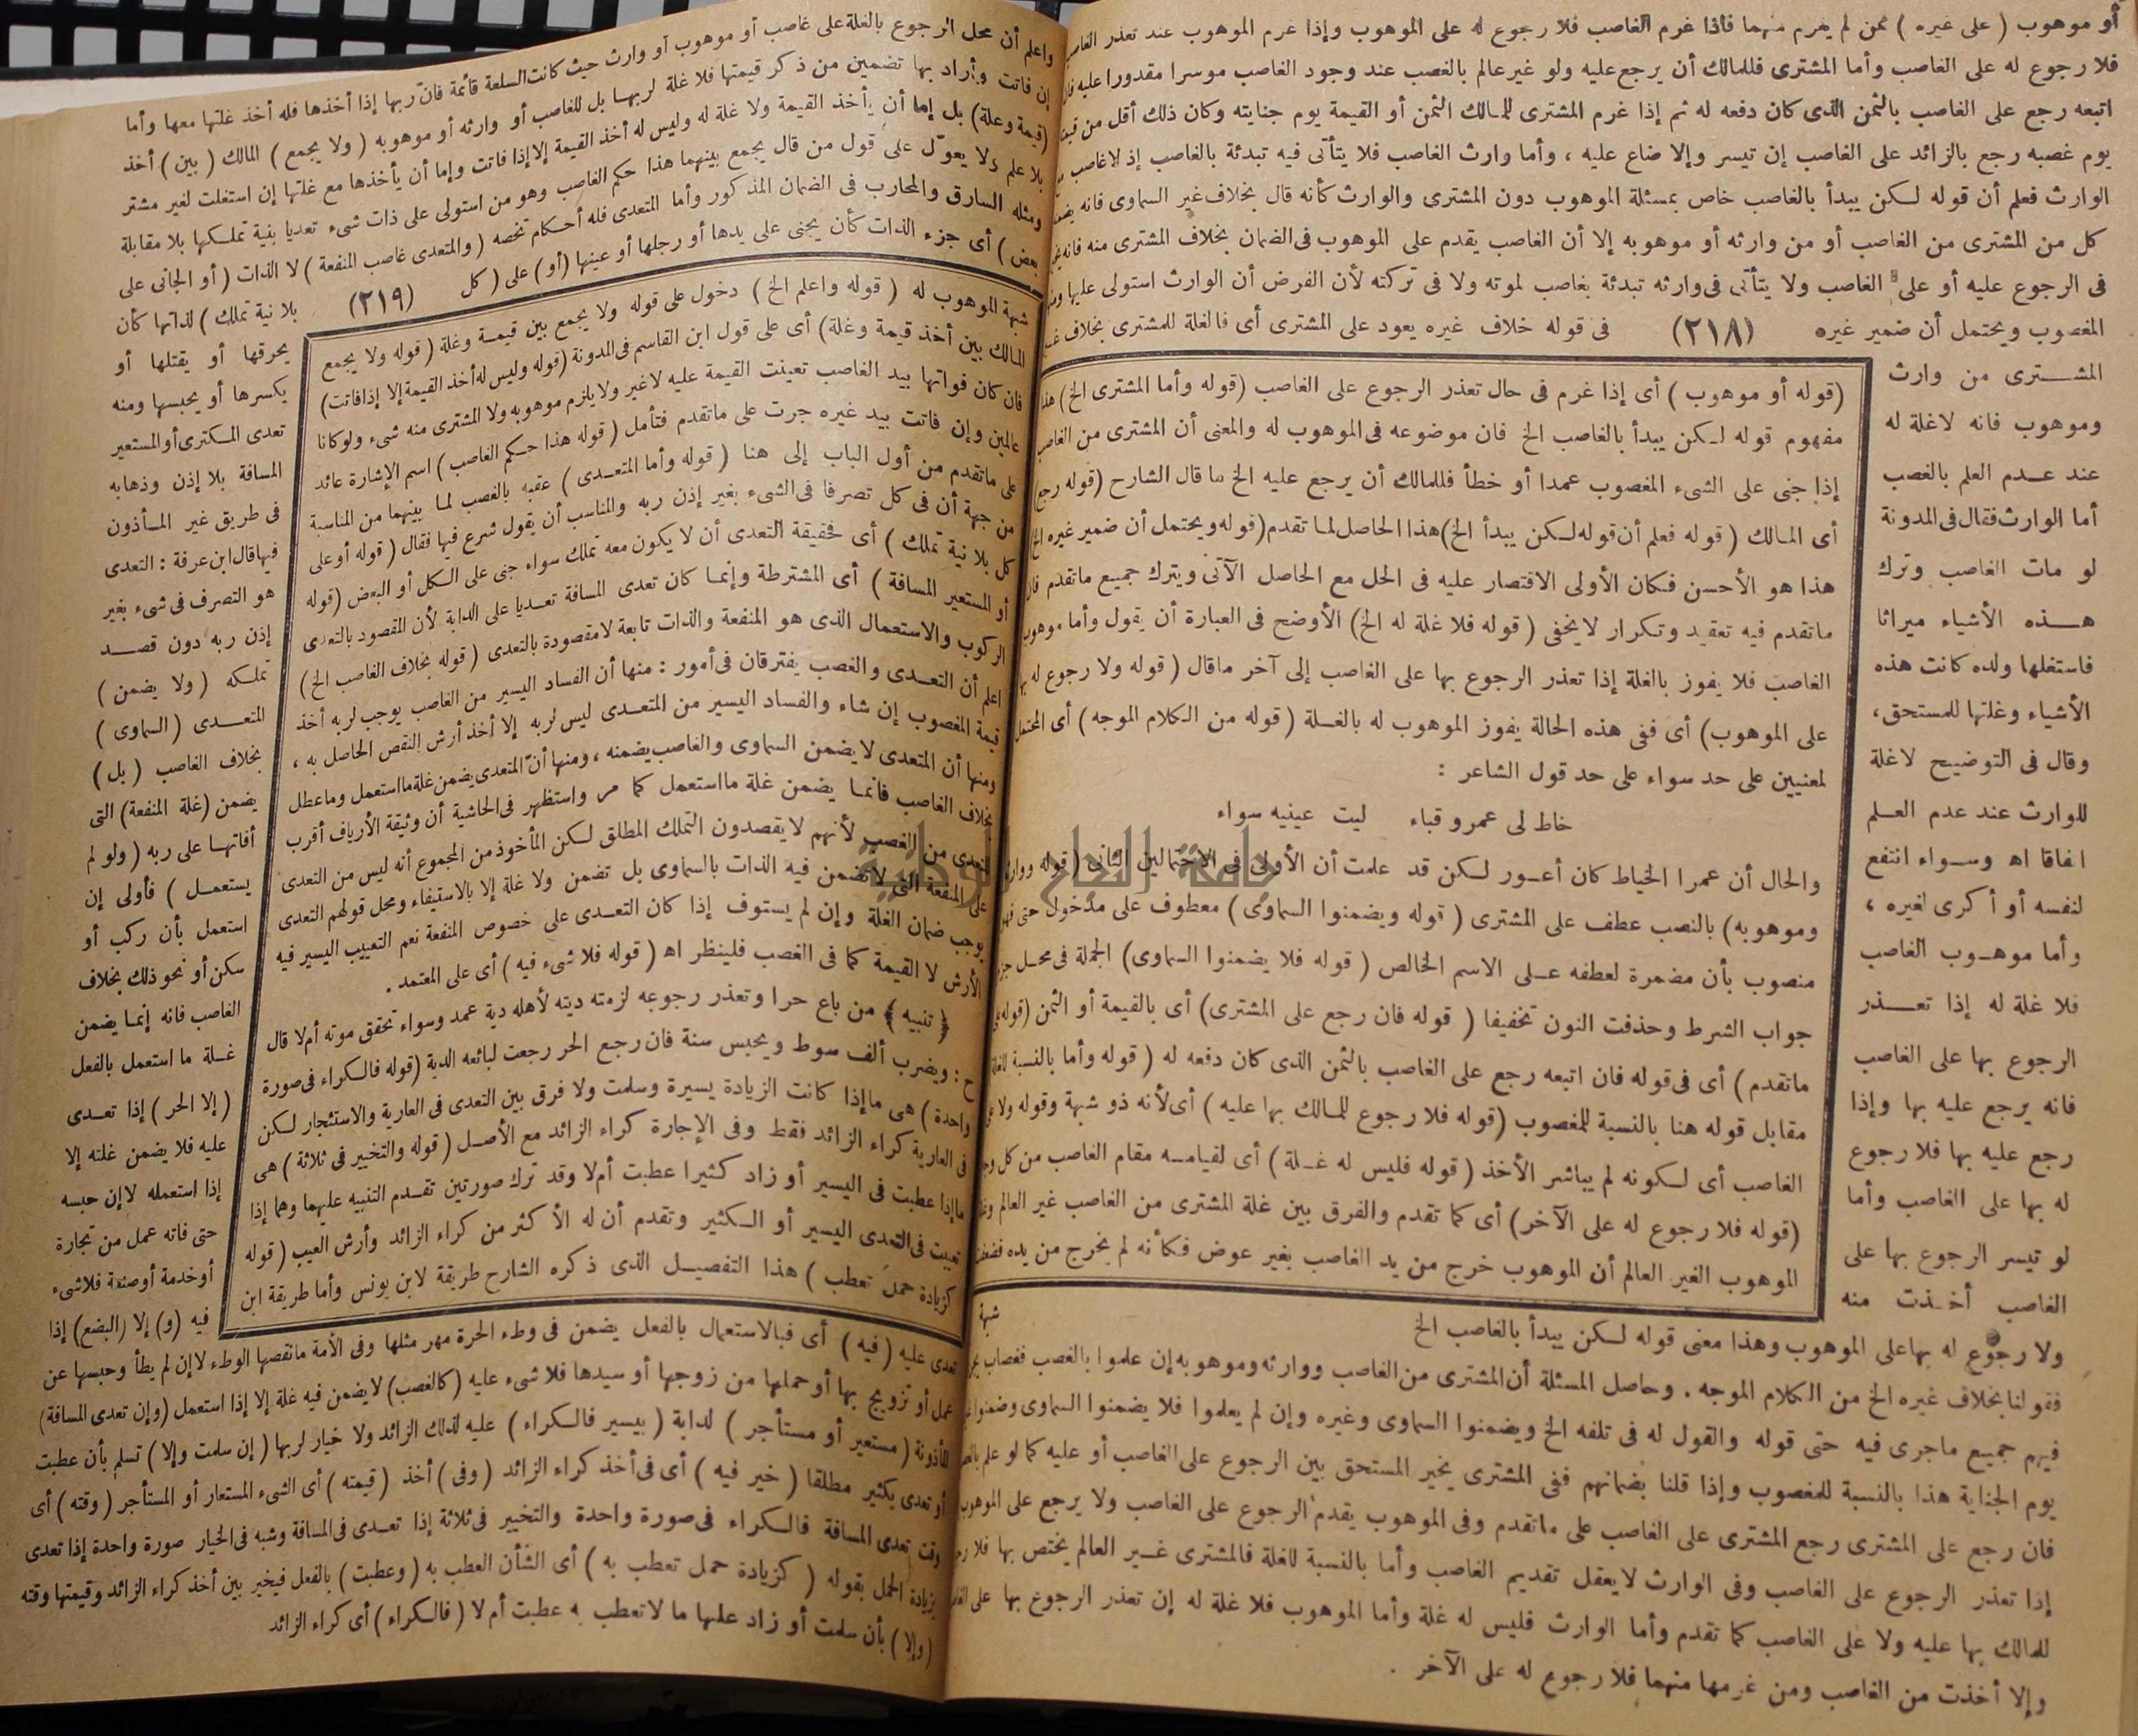 أو موهوب ( على غيره ) ممن لم يغرم منهما فاذا غرم الغاصب فلا رجوع له على الموهوب وإذا غرم الموهوب عند تعذر الغاصب
فلا رجوع له على الغاصب وأما المشترى فللمالك أن يرجع عليه ولو غير عالم بالغصب عند وجود الغاصب موسرا مقدورا عليه فان
اتبعه رجع على الغاصب بالثمن الذى كان دفعه له ثم إذا غرم المشترى للمالك الثمن أو القيمة يوم جنايته وكان ذلك أقل من قيمته
يوم غصبه رجع بالزائد على الغاصب إن تيسر وإلا ضاع عليه ، وأما وارث الغاصب فلا يتأتى فيه تبدئة بالغاصب إذ لاغاصب
الوارث فعلم أن قوله لكن يبدأ بالغاصب خاص بمسئلة الموهوب دون المشترى والوارث كأنه قال بخلاف غير السماوى فانه يضمنه
كل من المشترى من الغاصب أو من وارثه أو موهوبه إلا أن الغاصب يقدم على الموهوب فى الضمان بخلاف المشترى منه فانه
فى الرجوع عليه أو على الغاصب ولا يتأتى فى وارثه تبدئة بغاصب لموته ولا فى تركته لأن الفرض أن الوارث استولى عليها
المغصوب ويحتمل أن ضمير غيره (٢١٨) فى قوله خلاف غيره يعود على المشترى أى فالغلة للمشترى بخلاف
المشترى من وارث
وموهوب فانه لاغلة له
عند عدم العلم بالغصب
أما الوارث فقال فى المدونة
لو مات الغاصب وترك
هذه الأشياء ميراثا
فاستغلها ولده كانت هذه
الأشياء وغلتها للمستحق ،
وقال فى التوضيح لاغلة
للوارث عند عدم العلم
اتفاقا اه وسواء انتفع
لنفسه أو أكرى لغيره ،
وأما موهوب الغاصب
فلا غلة له إذا تعذر
الرجوع بها على الغاصب
فانه يرجع عليه بها وإذا
رجع عليه بها فلا رجوع
له بها على الغاصب وأما
لو تيسر الرجوع بها على
الغاصب أخذت منه
ولا رجوع له بها على الموهوب وهذا معنى قوله لكن يبدأ بالغاصب الخ
فقولنا بخلاف غيره الخ من الكلام الموجه . وحاصل المسئلة أن المشترى من الغاصب ووارثه وموهوبه إن علموا بالغصب فغصاب
فيهم جميع ماجرى فيه حتى قوله والقول له فى تلفه الخ ويضمنوا السماوى وغيره وإن لم يعلموا فلا يضمنوا السماوى وضمنوا
يوم الجناية هذا بالنسبة للمغصوب وإذا قلنا بضمانهم ففى المشترى يخير المستحق بين الرجوع على الغاصب أو عليه كما لو علم
فان رجع على المشترى رجع المشترى على الغاصب على ماتقدم وفى الموهوب يقدم الرجوع على الغاصب ولا يرجع على الموهوب
إذا تعذر الرجوع على الغاصب وفى الوارث لا يعقل تقديم الغاصب وأما بالنسبة للغلة فالمشترى غير العالم يختص بها فلا
للمالك بها عليه ولا على الغاصب كما تقدم وأما الوارث فليس له غلة وأما الموهوب فلا غلة له إن تعذر الرجوع بها على
وإلا أخذت من الغاصب ومن غرمها منهما فلا رجوع له على الآخر .
(قوله أو موهوب ) أى إذا غرم فى حال تعذر الرجوع على الغاصب (قوله وأما المشترى الخ) هذا
مفهوم قوله لكن يبدأ بالغاصب الخ فان موضوعه فى الموهوب له والمعنى أن المشترى من الغاصب
إذا جنى على الشىء المغصوب عمدا أو خطأ فللمالك أن يرجع عليه الخ ما قال الشارح (قوله رجع)
أى المالك ( قوله فعلم أن قوله لكن يبدأ الخ) هذا الحاصل لما تقدم (قوله ويحتمل أن ضمير غيره الخ)
هذا هو الأحسن فكان الأولى الاقتصار عليه فى الحل مع الحاصل الآتى ويترك جميع ماتقدم فان
ماتقدم فيه تعقيد وتكرار لايخفى ( قوله فلا غلة له الخ) الأوضح فى العبارة أن يقول وأما موهوب
الغاصب فلا يفوز بالغلة إذا تعذر الرجوع بها على الغاصب إلى آخر ماقال ( قوله ولا رجوع له بها
على الموهوب) أى ففى هذه الحالة يفوز الموهوب له بالغلة ( قوله من الكلام الموجه ) أى المحتمل
لمعنيين على حد سواء على حد قول الشاعر :
خاط لى عمرو قباء ليت عينيه سواء
والحال أن عمرا الخياط كان أعور لكن قد علمت أن الأولى فى الاحتمالين الثانى ( قوله ووارثه
وموهوبه) بالنصب عطف على المشترى ( قوله ويضمنوا السماوى) معطوف على مدخول حتى فهو
منصوب بأن مضمرة لعطفه على الاسم الخالص ( قوله فلا يضمنوا السماوى) الجملة فى محل جزم
جواب الشرط وحذفت النون تخفيفا ( قوله فان رجع على المشترى) أى بالقيمة أو الثمن (قوله على
ماتقدم ) أى فى قوله فان اتبعه رجع على الغاصب بالثمن الذى كان دفعه له ( قوله وأما بالنسبة للغلة)
مقابل قوله هنا بالنسبة للمغصوب (قوله فلا رجوع للمالك بها عليه ) أى لأنه ذو شبهة وقوله ولا على
الغاصب أى لكونه لم يباشر الأخذ ( قوله فليس له غلة ) أى لقيامه مقام الغاصب من كل وجه
(قوله فلا رجوع له على الآخر) أى كما تقدم والفرق بين غلة المشترى من الغاصب غير العالم
الموهوب الغير العالم أن الموهوب خرج من يد الغاصب بغير عوض فكأنه لم يخرج من يده فضعفت
شبهة
واعلم أن محل الرجوع بالغلة على غاصب أو موهوب أو وارث حيث كانت السلعة قائمة فان ربها إذا أخذها فله أخذ غلتها معها وأما
إن فاتت وأراد بها تضمين من ذكر قيمتها فلا غلة لربها بل للغاصب أو وارثه أو موهوبه ( ولا يجمع ) المالك ( بين ) أخذ
(قيمة وغلة) بل إما أن يأخذ القيمة ولا غلة له وليس له أخذ القيمة إلا إذا فاتت وإما أن يأخذها مع غلتها إن استغلت لغير مشتر
بلا علم ولا يعوّل على قول من قال يجمع بينهما هذا حكم الغاصب وهو من استولى على ذات شىء تعديا بنية تملكها بلا مقابلة
ومثله السارق والمحارب فى الضمان المذكور وأما المتعدى فله أحكام تخصه ( والمتعدى غاصب المنفعة ) لا الذات ( أو الجانى على
بعض ) أى جزء الذات كأن يجنى على يدها أو رجلها أو عينها (أو) على ( كل (٢١٩) بلا نية تملك ) لذاتها كأن
يحرقها أو يقتلها أو
يكسرها أو يحبسها ومنه
تعدى المكترى أو المستعير
المسافة بلا إذن وذهابه
فى طريق غير المأذون
فيها قال ابن عرفة : التعدى
هو التصرف فى شىء بغير
إذن ربه دون قصد
تملكه ( ولا يضمن )
المتعدى ( السماوى )
بخلاف الغاصب ( بل )
يضمن (غلة المنفعة) التى
أفاتها على ربه ( ولو لم
يستعمل ) فأولى إن
استعمل بأن ركب أو
سكن أو نحو ذلك بخلاف
الغاصب فانه إنما يضمن
غلة ما استعمل بالفعل
( إلا الحر ) إذا تعدى
عليه فلا يضمن غلته إلا
إذا استعمله لا إن حبسه
حتى فاته عمل من تجارة
أو خدمة أو صنعة فلا شىء
فيه (و) إلا (البضع) إذا
تعدى عليه (فيه ) أى فبالاستعمال بالفعل يضمن فى وطء الحرة مهر مثلها وفى الأمة مانقصها الوطء لا إن لم يطأ وحبسها عن
عمل أو تزويج بها أو حملها من زوجها أو سيدها فلا شىء عليه (كالغصب) لا يضمن فيه غلة إلا إذا استعمل (وإن تعدى المسافة)
المأذونة ( مستعير أو مستأجر ) لدابة ( بيسير فالكراء ) عليه لذلك الزائد ولا خيار لربها ( إن سلمت وإلا ) تسلم بأن عطبت
أو تعدى بكثير مطلقا ( خير فيه ) أى فى أخذ كراء الزائد ( وفى ) أخذ ( قيمته ) أى الشىء المستعار أو المستأجر ( وقته ) أى
وقت تعدى المسافة فالكراء فى صورة واحدة والتخيير فى ثلاثة إذا تعدى فى المسافة وشبه فى الخيار صورة واحدة إذا تعدى
بزيادة الحمل بقوله ( كزيادة حمل تعطب به ) أى الشأن العطب به ( وعطبت ) بالفعل فيخير بين أخذ كراء الزائد وقيمتها وقته
( وإلا ) بأن سلمت أو زاد عليها ما لا تعطب به عطبت أم لا ( فالكراء ) أى كراء الزائد
شبهة الموهوب له ( قوله واعلم الخ ) دخول على قوله ولا يجمع بين قيمة وغلة ( قوله ولا يجمع
المالك بين أخذ قيمة وغلة) أى على قول ابن القاسم فى المدونة (قوله وليس له أخذ القيمة إلا إذا فاتت)
فان كان فواتها بيد الغاصب تعينت القيمة عليه لا غير ولا يلزم موهوبه ولا المشترى منه شىء ولو كانا
عالمين وإن فاتت بيد غيره جرت على ماتقدم فتأمل ( قوله هذا حكم الغاصب ) اسم الإشارة عائد
على ماتقدم من أول الباب إلى هنا ( قوله وأما المتعدى ) عقبه بالغصب لما بينهما من المناسبة
من جهة أن فى كل تصرفا فى الشىء بغير إذن ربه والمناسب أن يقول شرع فيها فقال ( قوله أو على
كل بلا نية تملك ) أى فحقيقة التعدى أن لا يكون معه تملك سواء جنى على الكل أو البعض (قوله
أو المستعير المسافة ) أى المشترطة وإنما كان تعدى المسافة تعديا على الدابة لأن المقصود بالتعدى
الركوب والاستعمال الذى هو المنفعة والذات تابعة لا مقصودة بالتعدى ( قوله بخلاف الغاصب الخ )
اعلم أن التعدى والغصب يفترقان فى أمور : منها أن الفساد اليسير من الغاصب يوجب لربه أخذ
قيمة المغصوب إن شاء والفساد اليسير من المتعدى ليس لربه إلا أخذ أرش النقص الحاصل به ،
ومنها أن المتعدى لا يضمن السماوى والغاصب يضمنه ، ومنها أنّ المتعدى يضمن غلة ما استعمل وما عطل
بخلاف الغاصب فانما يضمن غلة ما استعمل كما مر واستظهر فى الحاشية أن وثيقة الأرياف أقرب
للتعدى من الغصب لأنهم لا يقصدون التملك المطلق لكن المأخوذ من المجموع أنه ليس من التعدى
على المنفعة التى لا تضمن فيه الذات بالسماوى بل تضمن ولا غلة إلا بالاستيفاء ومحل قولهم التعدى
يوجب ضمان الغلة وإن لم يستوف إذا كان التعدى على خصوص المنفعة نعم التعييب اليسير فيه
الأرش لا القيمة كما فى الغصب فلينظر اه ( قوله فلا شىء فيه ) أى على المعتمد .
﴿ تنبيه ﴾ من باع حرا وتعذر رجوعه لزمته ديته لأهله دية عمد وسواء تحقق موته أم لا قال
ح : ويضرب ألف سوط ويحبس سنة فان رجع الحر رجعت لبائعه الدية ( قوله فالكراء فى صورة
واحدة ) هى ما إذا كانت الزيادة يسيرة وسلمت ولا فرق بين التعدى فى العارية والاستئجار لكن
فى العارية كراء الزائد فقط وفى الإجارة كراء الزائد مع الأصل ( قوله والتخيير فى ثلاثة ) هى
ما إذا عطبت فى اليسير أو زاد كثيرا عطبت أم لا وقد ترك صورتين تقدم التنبيه عليهما وهما إذا
تعيبت فى التعدى اليسير أو الكثير وتقدم أن له الأكثر من كراء الزائد وأرش العيب ( قوله
كزيادة حمل تعطب ) هذا التفصيل الذى ذكره الشارح طريقة لابن يونس وأما طريقة ابن
جامعة النجاح الوطنية